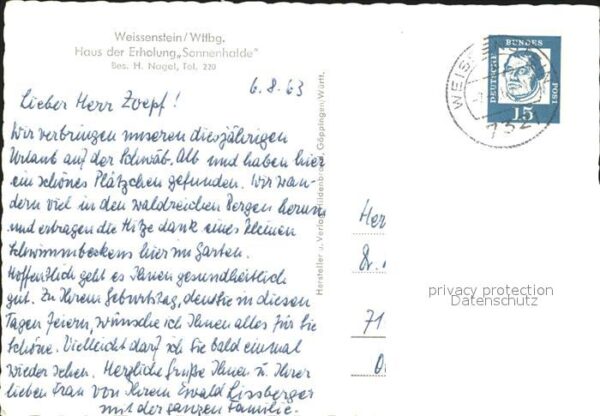 Weissenstein/Wttbg.
Haus der Erholung „Sonnenhalde"
Bes. H. Nagel, Tel. 220
6.8.63
Lieber Herr Zoepf!
Wir verbringen unseren diesjährigen
Urlaub auf der Schwäb. Alb und haben hier
ein schönes Plätzchen gefunden. Wir wan-
dern viel in den waldreichen Bergen herum
und ertragen die Hitze dank eines kleinen
Schwimmbeckens hier im Garten.
Hoffentlich geht es Ihnen gesundheitlich
gut. Zu Ihrem Geburtstag, den Sie in diesen
Tagen feiern, wünsche ich Ihnen alles für Sie
Schöne. Vielleicht darf ich Sie bald einmal
wieder sehen. Herzliche Grüße Ihnen u. Ihrer
lieben Frau von Ihrem Ewald Lissberger
mit der ganzen Familie.
Hersteller u. Verlag Göppingen/Württ.
DEUTSCHE BUNDES POST
15
WEISSEN
732
Her
Dr.
71
privacy protection
Datenschutz